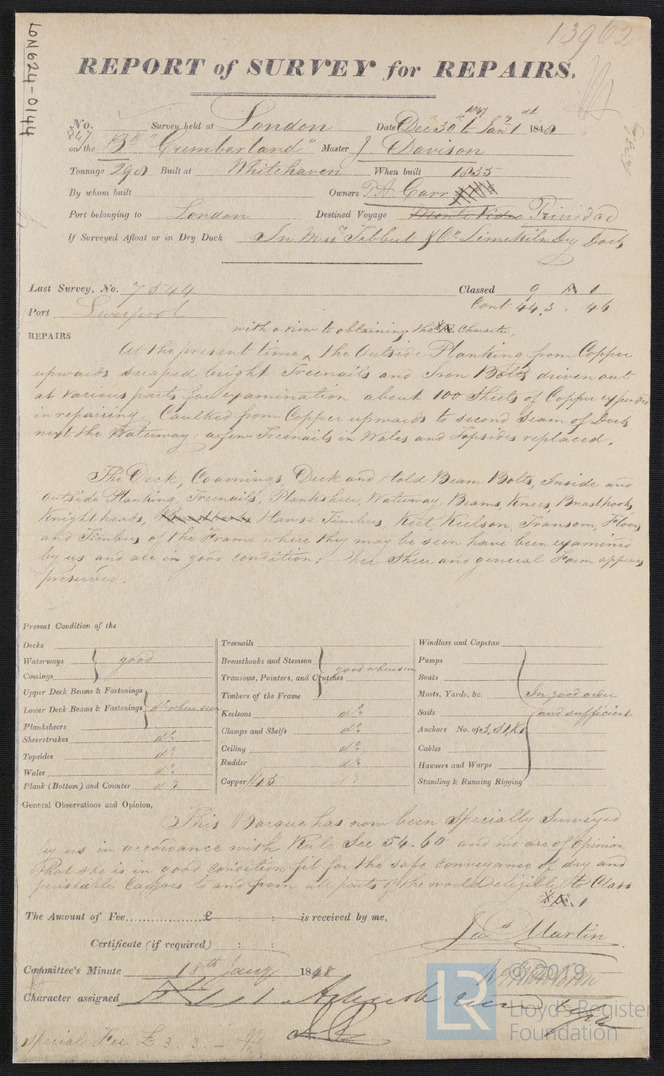 13962
LON624-0144
REPORT of SURVEY for REPAIRS.
No. 847 Survey held at London Date Dec 30th 1847 Jany 1st 1848
on the Bk "Cumberland" Master J Davison
Tonnage 290 Built at Whitehaven When built 1835
By whom built Owners Carr
Port belonging to London Destined Voyage Trinidad
If Surveyed Afloat or in Dry Dock In Messrs Tebbut & Co Limekiln Dry Dock
Last Survey, No. 7544 Classed 9 A 1
Port Liverpool Cont 44.3. 46
with a view to obtaining the *A Character.
REPAIRS
At the present time, the Outside Planking from Copper
upwards scraped bright Treenails and Iron Bolts driven out
at various parts for examination about 100 Sheets of Copper expended
in repairing Caulked from Copper upwards to second seam of Deck
next the Waterway; a few Treenails in Wales and Topsides replaced.
The Deck, Coamings, Deck and Hold Beam Bolts, Inside and
outside Planking, Treenails, Plankshire, Waterway, Beams, Knees, Breasthooks
Knightheads, Hawse Timbers, Keel Keelson, Transom, Floors
and Timbers of the Frame where they may be seen have been examined
by us and are in good condition; her Sheer and general Form appears
preserved.
Present Condition of the
Decks
Waterways good
Comings
Upper Deck Beams & Fastenings
Lower Deck Beams & Fastenings do where seen
Planksheers
Sheerstrakes do
Topsides do
Wales do
Plank (Bottom) and Counter do
Treenails
Breasthooks and Stemson good where seen
Transoms, Pointers, and Crutches
Timbers of the Frame
Keelsons do
Clamps and Shelfs do
Ceiling do
Rudder do
Copper 1845 do
Windlass and Capstan
Pumps
Boats
Masts, Yards, &c. In good order
Sails and sufficient
Anchors No. of 3, S1, K1
Cables
Hawsers and Warps
Standing & Running Rigging
General Observations and Opinion,
This Barque has now been Specially Surveyed
by us in accordance with Rule Sec 54.60 and we are of opinion
that she is in good condition fit for the safe conveyance of dry and
perishable Cargoes to and from all parts of the world eligible to Class
*A.1
The Amount of Fee £ : : is received by me,
Certificate (if required) : :
Jas Martin
Committee's Minute 18th Jany 1848
Character assigned
Special Fee £ 3. 3. –
LR
© 2019
Lloyd's Register
Foundation